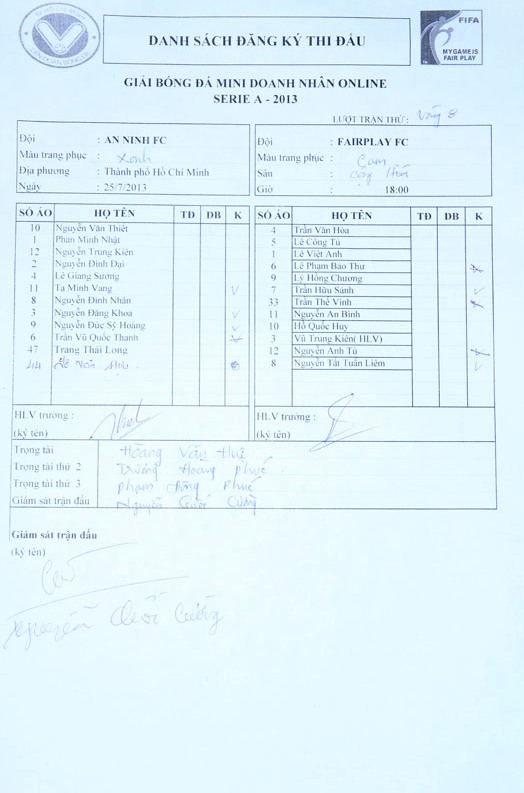 DANH SÁCH ĐĂNG KÝ THI ĐẤU
FIFA
MY GAME IS
FAIR PLAY
GIẢI BÓNG ĐÁ MINI DOANH NHÂN ONLINE
SERIE A - 2013
LƯỢT TRẬN THỨ : Vòng 8
Đội : AN NINH FC
Màu trang phục : Xanh
Địa phương : Thành phố Hồ Chí Minh
Ngày : 25/7/2013
Đội : FAIRPLAY FC
Màu trang phục : Cam
Sân :
Giờ 18:00
SỐ ÁO HỌ TÊN TĐ DB K
10 Nguyễn Văn Thiết
1 Phan Minh Nhật
12 Nguyễn Trung Kiên
2 Nguyễn Đình Đại
4 Lê Giang Sương
11 Tạ Minh Vang
8 Nguyễn Đình Nhân
3 Nguyễn Đăng Khoa
9 Nguyễn Đức Sỹ Hoàng
6 Trần Vũ Quốc Thanh
47 Trang Thái Long
44
SỐ ÁO HỌ TÊN TĐ DB K
4 Trần Văn Hòa
5 Lê Công Tú
1 Lê Việt Anh
6 Lê Phạm Bảo Thư
9 Lý Hồng Chương
7 Trần Hữu Sánh
33 Trần Thế Vinh
11 Nguyễn An Bình
10 Hồ Quốc Huy
3 Vũ Trung Kiên( HLV)
12 Nguyễn Anh Tú
8 Nguyễn Tất Tuấn Liêm
HLV trưởng :
(ký tên)
HLV trưởng :
(ký tên)
Trọng tài Hoàng Văn Huệ
Trọng tài thứ 2 Trương Hoàng Phúc
Trọng tài thứ 3 Phạm Phúc
Giám sát trận đấu Nguyễn Quốc Cường
Giám sát trận đấu
(ký tên)
Nguyễn Quốc Cường